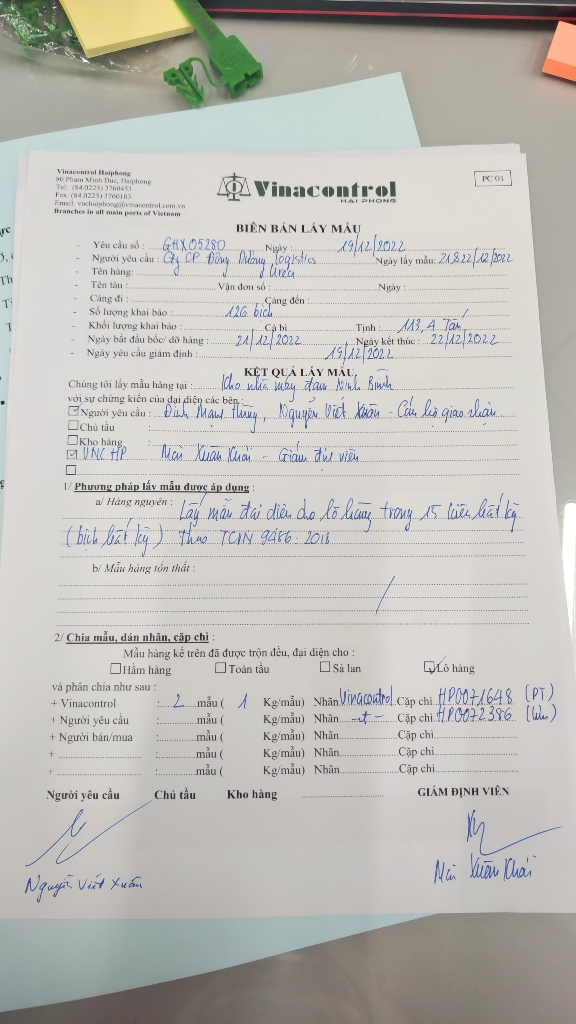 Vinacontrol Haiphong
80 Pham Minh Duc, Haiphong
Tel: (84.0225) 3760453
Fax: (84.0225) 3760183
Email: vnchaiphong@vinacontrol.com.vn
Branches in all main ports of Vietnam
Vinacontrol
HAI PHONG
PC 01
BIÊN BẢN LẤY MẪU
- Yêu cầu số : GHX05280 Ngày : 19/12/2022
- Người yêu cầu : Cty CP Đông Dương logistics Ngày lấy mẫu: 21,&22/12/2022
- Tên hàng: Urea
- Tên tàu : Vận đơn số : Ngày :
- Cảng đi : Cảng đến :
- Số lượng khai báo : 126 bịch
- Khối lượng khai báo : Cả bì Tịnh : 113,4 Tấn
- Ngày bắt đầu bốc/ dỡ hàng : 21/12/2022 Ngày kết thúc : 22/12/2022
- Ngày yêu cầu giám định : 19/12/2022
KẾT QUẢ LẤY MẪU
Chúng tôi lấy mẫu hàng tại : Kho nhà máy đạm Ninh Bình
với sự chứng kiến của đại diện các bên :
Người yêu cầu : Đinh Mạnh Hùng, Nguyễn Viết Xuân - Cán bộ giao nhận
Chủ tầu :
Kho hàng :
VNC HP Mai Xuân Khải - Giám định viên
1/ Phương pháp lấy mẫu được áp dụng :
a/ Hàng nguyên : Lấy mẫu đại diện cho lô hàng trong 15 kiện bất kỳ
(bịch bất kỳ) theo TCVN 9486:2018
b/ Mẫu hàng tổn thất :
2/ Chia mẫu, dán nhãn, cặp chì :
Mẫu hàng kể trên đã được trộn đều, đại diện cho :
Hầm hàng Toàn tầu Sà lan Lô hàng
và phân chia như sau :
+ Vinacontrol : 2 mẫu ( 1 Kg/mẫu) Nhãn Vinacontrol Cặp chì HP0071648 (PT)
+ Người yêu cầu : mẫu ( Kg/mẫu) Nhãn -nt- Cặp chì HP0072386 (lưu)
+ Người bán/mua : mẫu ( Kg/mẫu) Nhãn Cặp chì
+ : mẫu ( Kg/mẫu) Nhãn Cặp chì
+ : mẫu ( Kg/mẫu) Nhãn Cặp chì
Người yêu cầu Chủ tầu Kho hàng GIÁM ĐỊNH VIÊN
Nguyễn Viết Xuân Mai Xuân Khải